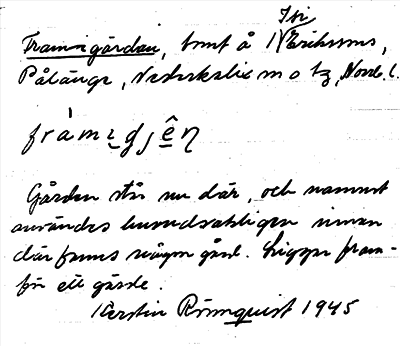 Isi
Framigården, tomt å N Erikssons,
Pålänge, Nederkalix sn o tz, Norrb. l.
fràmi̠gjê̠n
Gården står nu där, och namnet
användes huvudsakligen innan
där fanns någon gård. Ligger fram-
för ett gärde.
Kerstin Rönnquist 1945